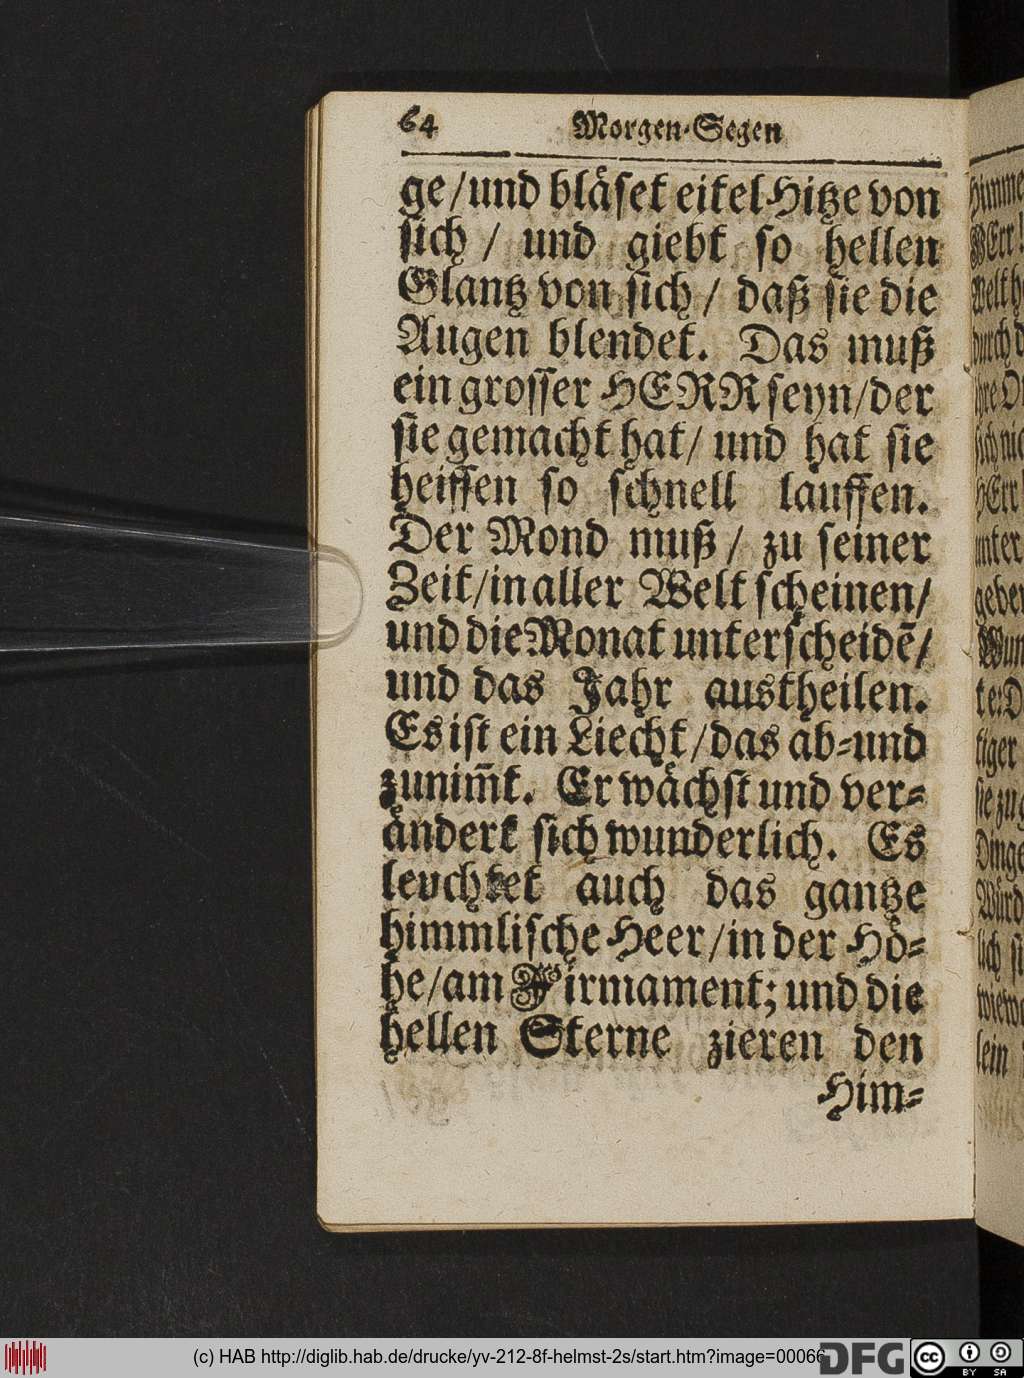 64 Morgen-Segen
ge/und bläset eitel Hitze von
sich / und giebt so hellen
Glantz von sich / daß sie die
Augen blendet. Das muß
ein grosser HERR seyn/der
sie gemacht hat/ und hat sie
heissen so schnell lauffen.
Der Mond muß / zu seiner
Zeit/in aller Welt scheinen/
und die Monat unterscheidē/
und das Jahr austheilen.
Es ist ein Liecht/das ab-und
zunim̄t. Er wächst und ver-
ändert sich wunderlich. Es
leuchtet auch das gantze
himmlische Heer/in der Hö-
he/am Firmament; und die
hellen Sterne zieren den
Him-
(c) HAB http://diglib.hab.de/drucke/yv-212-8f-helmst-2s/start.htm?image=00066
DFG
cc BY SA